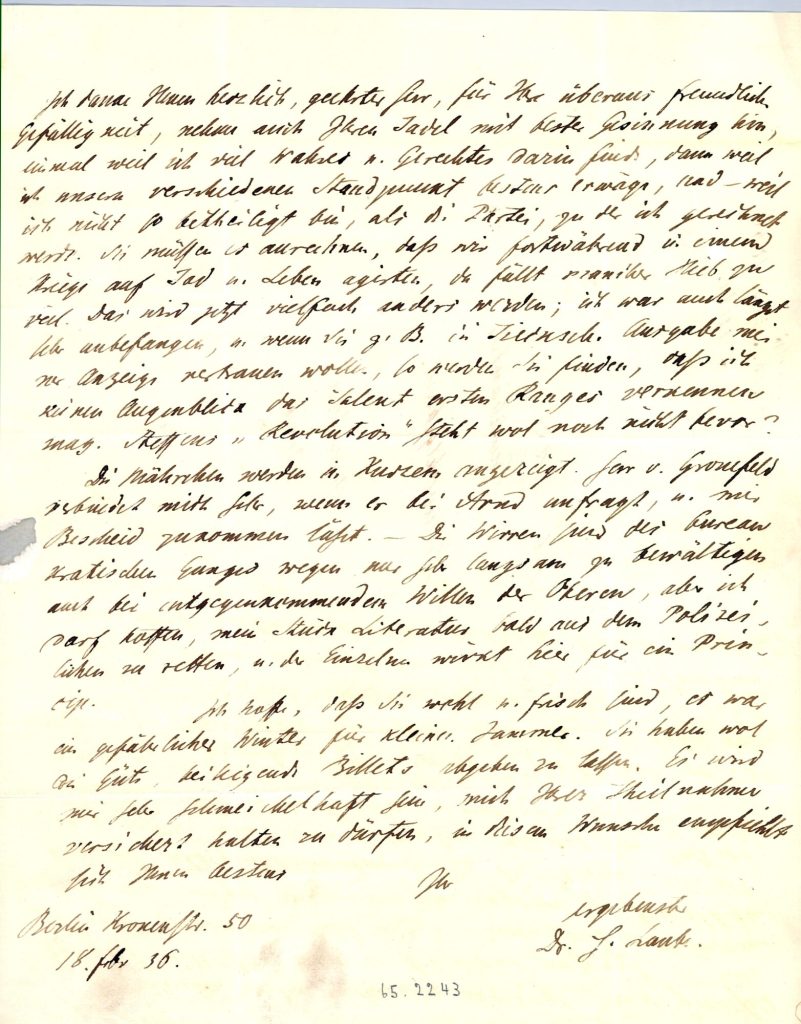 Ich danke Ihnen herzlich, geehrter Herr, für Ihre überaus freundliche
Gefälligkeit, nehme auch Ihren Tadel mit bester Gesinnung hin,
einmal weil ich viel Wahres u. Gerechtes darin finde, dann weil
ich unsern verschiedenen Standpunkt bestens erwäge, und – weil
ich nicht so betheiligt bin, als die Partei, zu der ich gerechnet
werde. Sie müssen es anrechnen, daß wir fortwährend in einem
Kriege auf Tod u. Leben agirten, da fällt mancher Hieb zu
viel. Das wird jetzt vielfach anders werden; ich war auch längst
sehr unbefangen, u. wenn Sie z. B. in Ausgabe mei-
ner Anzeige vertrauen wollen, so werden Sie finden, daß ich
keinen Augenblick das Talent ersten Ranges verkennen
mag. Steffens „Revolution" steht wol noch nicht bevor?
Die Mährchen werden in Kurzem angezeigt. Herr v.
verbindet mich sehr, wenn er bei anfragt, u. mir
Bescheid zukommen läßt. – Die Wirren sind des bureau
kratischen Ganges wegen nur sehr langsam zu bewältigen
auch bei entgegenkommendem Willen der Oberen, aber ich
darf hoffen, mein Stück Literatur bald aus dem Polizei-
lichen zu retten, u. der Einzelne wirkt hier für ein Prin-
cip.
Ich hoffe, daß Sie wohl u. frisch sind, es war
ein gefährlicher Winter für kleinen Jammer. Sie haben wol
die Güte, beiliegende Billets abgeben zu lassen. Es wird
mir sehr schmeichelhaft sein, mich Ihrer Theilnahme
versichert halten zu dürfen, in diesem Wunsche empfiehlt
sich Ihnen bestens
Ihr
ergebenster
Dr. H. Laube.
Berlin Kronenstr. 50
18. Febr 36.
65. 2243